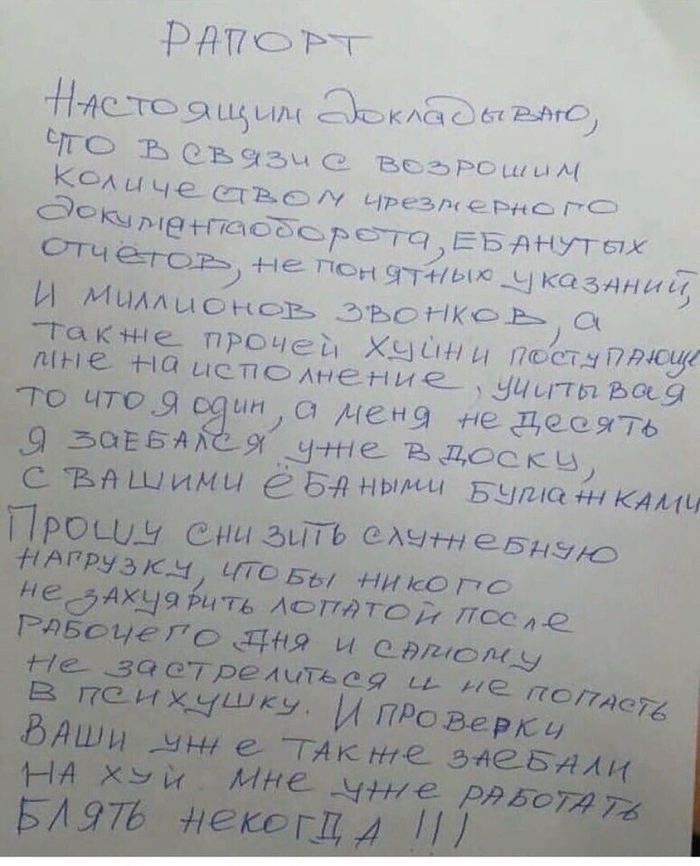 РАПОРТ
Настоящим докладываю,
что в связи с возрошим
количеством чрезмерного
документаоборота, ебанутых
отчётов, не понятных указаний,
и миллионов звонков, а
также прочей хуйни поступающе
мне на исполнение, учитывая
то что я один, а меня не десять
я заебался уже в доску,
с вашими ёбаными бумажками
Прошу снизить служебную
нагрузку, чтобы никого
не захуярить лопатой после
рабочего дня и самому
не застрелиться и не попасть
в психушку. И проверки
ваши уже также заебали
на хуй. мне уже работать
блять некогда !!!